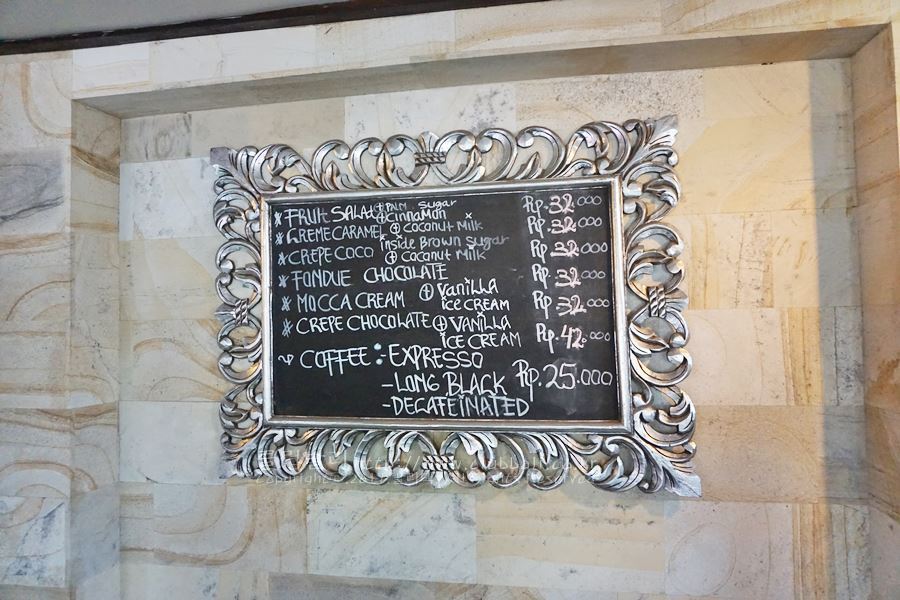 * FRUIT SALAD ⊕ PALM sugar ⊕ Cinnamon Rp. 32.000
* CREME CARAMEL ⊕ coconut Milk Rp. 32.000
* CREPE COCO inside Brown sugar ⊕ Coconut Milk Rp. 32.000
* FONDUE CHOCOLATE Rp. 32.000
* MOCCA CREAM ⊕ VaniLLA
ICE CREAM Rp 32.000
* CREPE CHOCOLATE ⊕ VaniLLA
ICE CREAM Rp. 42.000
~ COFFEE : - EXPRESSO
- LONG BLACK Rp. 25.000
- DECAFEINATED